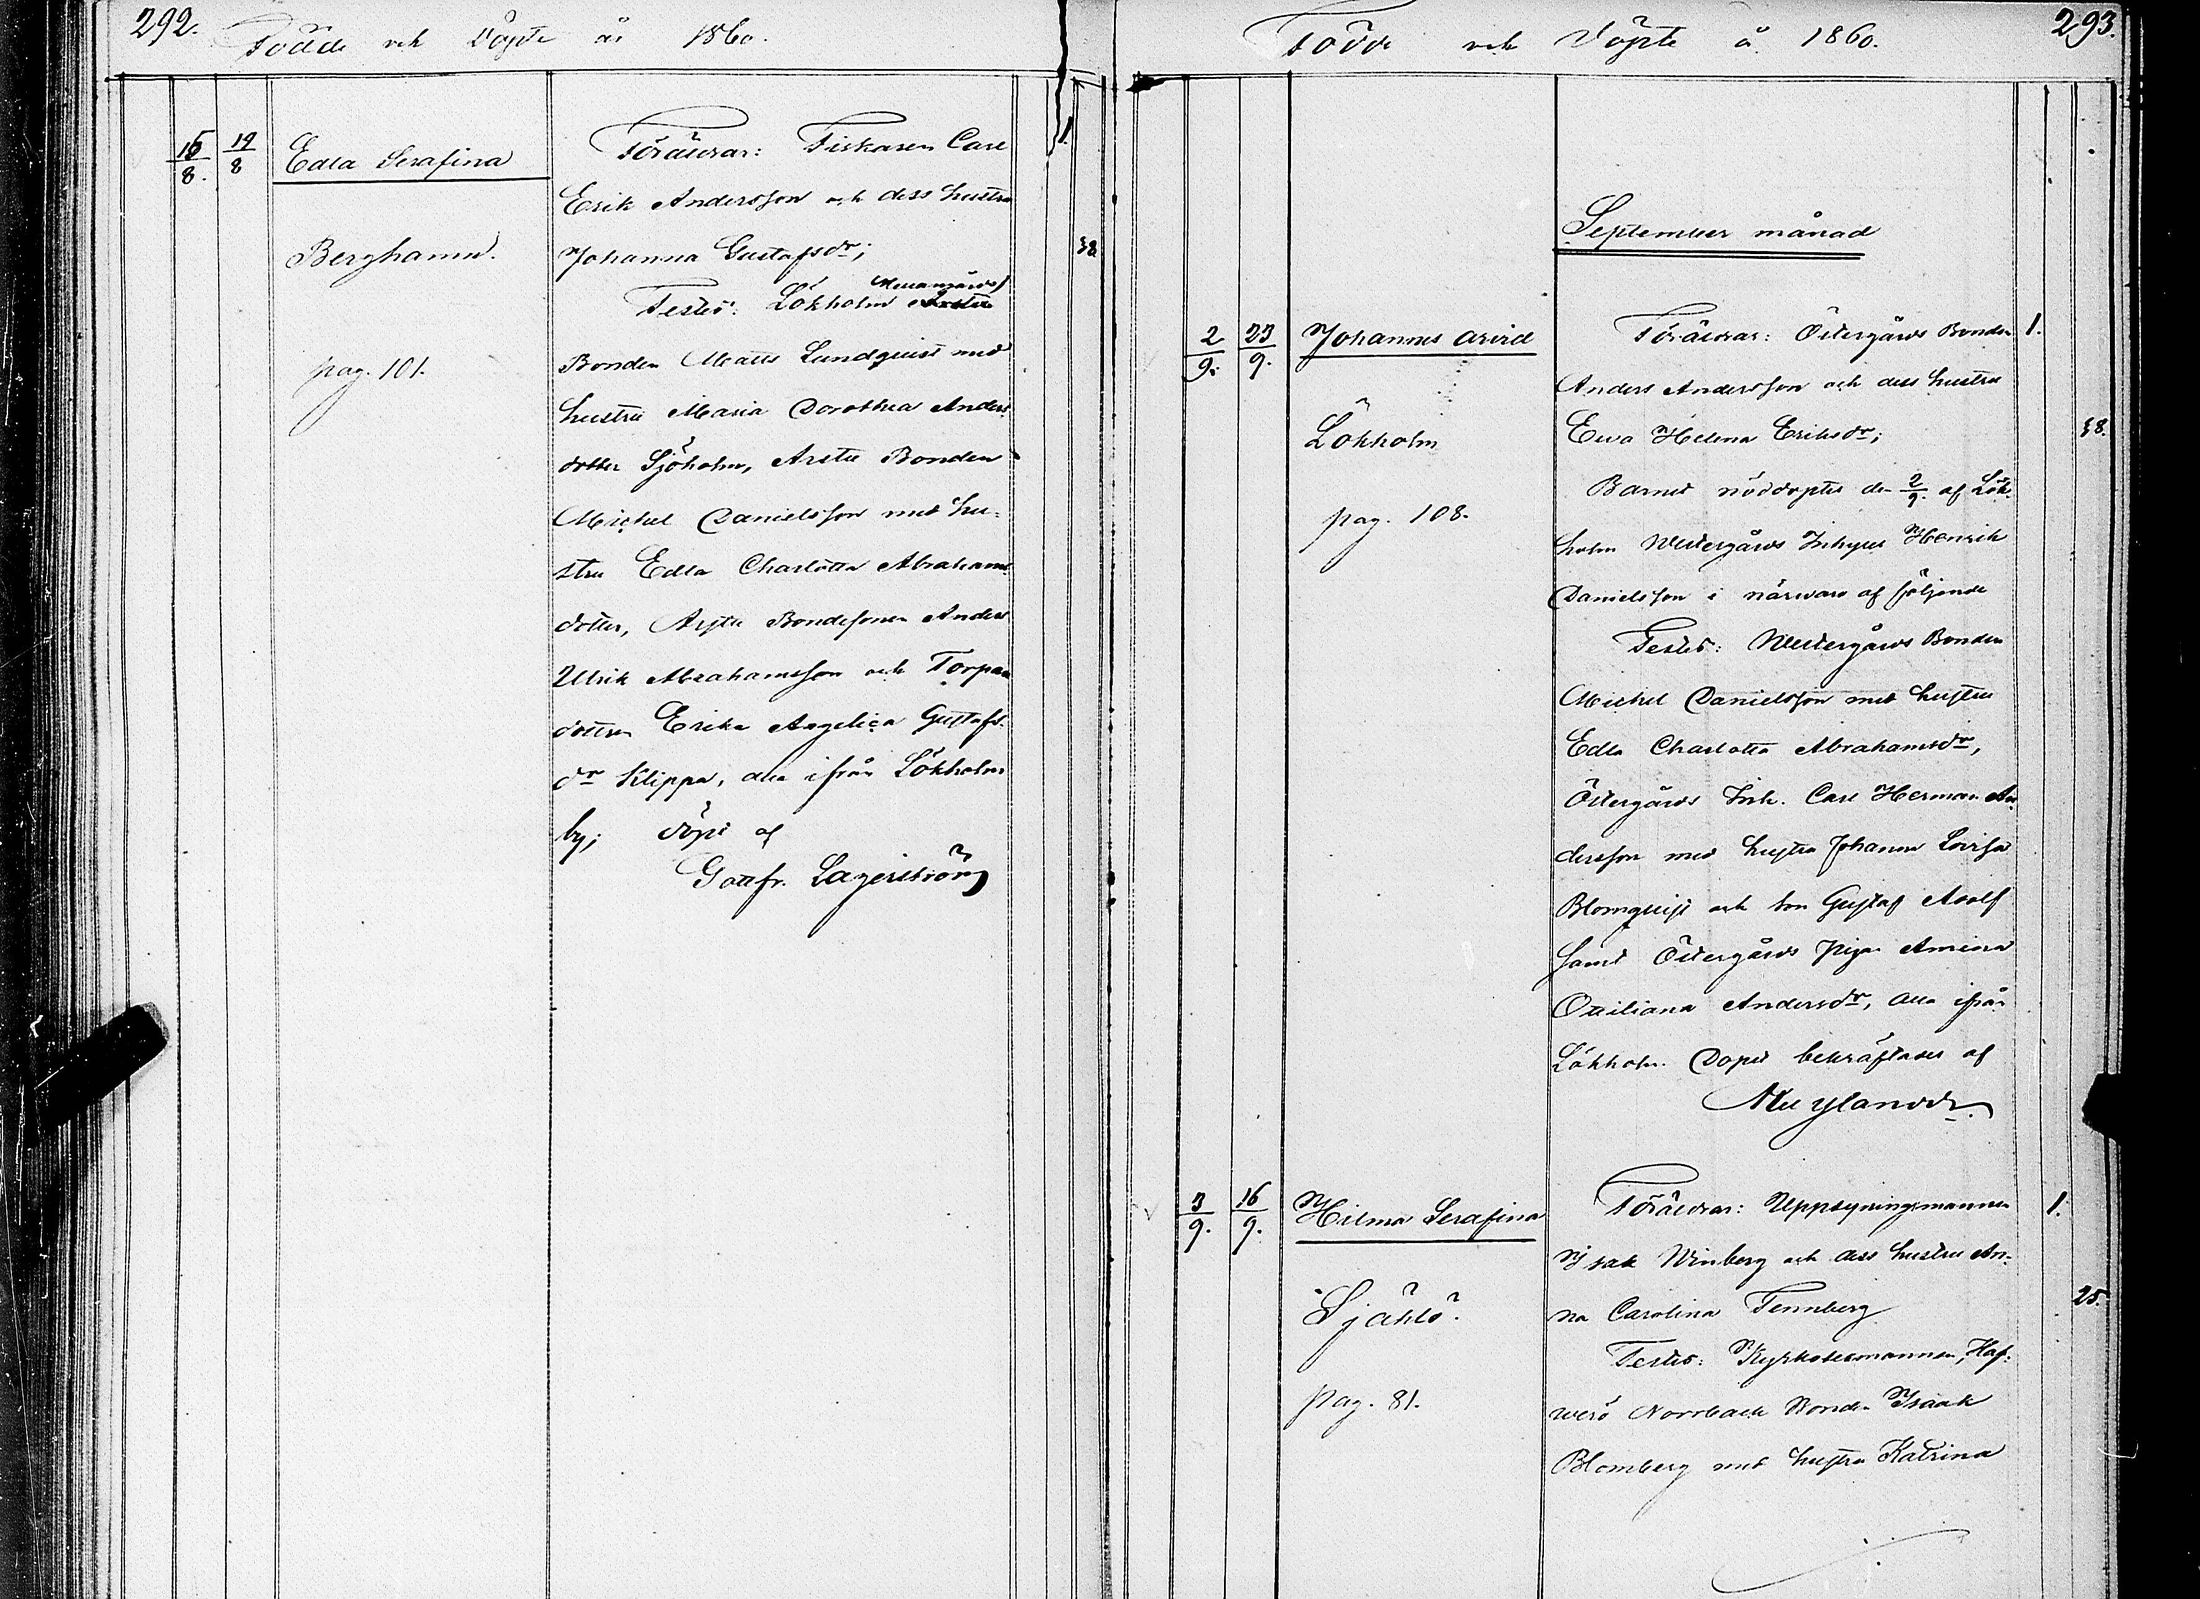 292.
Födde och Döpte år 1860.
15/8. 19/8 Edla Serafina
Berghamn.
pag. 101.
Föräldrar: Fiskaren Carl
Erik Andersson och dess hustru
Johanna Gustafsdr;
Testes: Lökholm Mellangårds
Bonden Matts Lundquist med
hustru Maria Dorothea Anders
dotter Sjöholm, Arstu Bonden
Michel Danielsson med hu-
stru Edla Charlotta Abrahams
dotter, Arstu Bondesonen Anders
Ulrik Abrahamsson och Torpare
dottren Erika Angelica Gustafs-
dr Klippa, alla ifrån Lökholm
by; döpt af
Gottfr. Lagerström
1.
38
Födde och Döpte å 1860.
293.
September månad
2/9. 23/9. Johannes Arvid
Lökholm
pag. 108.
Föräldrar: Östergårds Bonden
Anders Andersson och dess hustru
Ewa Helena Eriksdr;
Barnet nöddöptes den 2/9. af Lök-
holm Westergårds Inhyses Henrik
Danielsson i närwaro af följande
Testes: Westergårds Bonden
Michel Danielsson med hustru
Edla Charlotta Abrahamsdr,
Östergårds Inh. Carl Herman An
dersson med hustru Johanna Lovisa
Blomquist och son Gustaf Adolf
samt Östergårds Pigan Amina
Ottiliana Andersdr, alla ifrån
Lökholm. Dopet bekräftades af
1.
38.
3/9. 16/9. Hilma Serafina
Själö.
pag. 81.
Föräldrar: Uppsyningsmannen
Isak Winberg och dess hustru An-
na Carolina Tennberg
Testes: Kyrkobetmannen, Haf-
werö Norrback Bonden Isaak
Blomberg med hustru Katrina
1.
25.